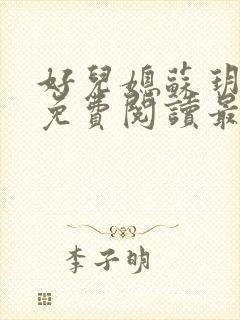 好兒媳蘇玥
免費閱讀最
李子明